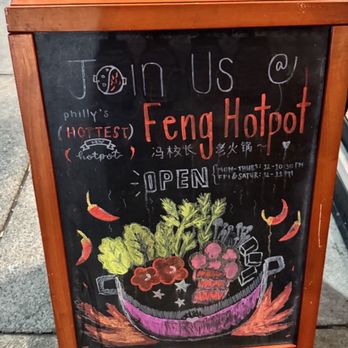 Join Us @
philly's
(HOTTEST)
new
hotpot
Feng Hotpot
冯校长 老火锅~
OPEN
MON-THURS: 12-10:30PM
FRI & SATUR: 12-11PM